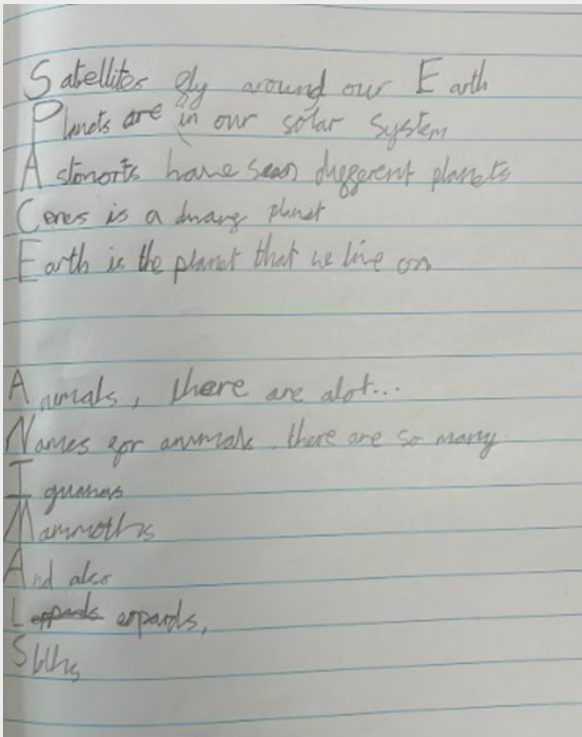 Satellites fly around our Earth
Planets are in our solar system
Astonorts have seen different planets
Ceres is a dwarf planet
Earth is the planet that we live on
Animals, there are alot...
Names for animals, there are so many.
Iguanas
Mammoths
And also
Leopards,